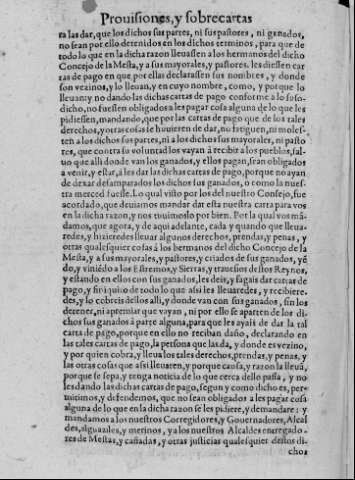 Prouisiones, y sobrecartas
ra las dar, que los dichos sus partes, ni sus pastores, ni ganados,
no sean por ello detenidos en los dichos terminos, para que de
todo lo que en la dicha razon lleuassen a los hermanos del dicho
Concejo de la Mesta, y a sus mayorales, y pastores. les diessen car
tas de pago en que por ellas declarassen sus nombres, y donde
son vezinos, y lo lleuan, y en cuyo nombre, como, y porque lo
lleuan: y no dando las dichas cartas de pago conforme a lo suso-
dicho, no fuessen obligados a les pagar cosa alguna de lo que les
pidiessen, mandando, que por las cartas de pago que de los tales
derechos, y otras cosas le huuieren de dar, no fatiguen, ni moles-
ten a los dichos sus partes, ni a los dichos sus mayorales, ni pasto
res, que contra su voluntad los vayan à recibir a los pueblos, sal-
uo que alli donde van los ganados, y ellos pagan, sean obligados
a venir, y estar, à les dar las dichas cartas de pago, porque no ayan
de dexar desamparados los dichos sus ganados, o como la nues-
tra merced fuesse. Lo qual visto por los del nuestro Consejo, fue
acordado, que deuiamos mandar dar esta nuestra carta para vos
en la dicha razon, y nos tuuimoslo por bien. Por la qual vos mã-
damos, que agora, y de aqui adelante, cada y quando que lleua-
redes, y hizieredes lleuar algunos derechos, prendas, y penas, y
otras qualesquier cosas à los hermanos del dicho Concejo de la
Mesta, y a sus mayorales, y pastores, y criados de sus ganados, yẽ
do, y viniẽdo a los Estremos, y Sierras, y trauessos destos Reynos,
y estando en ellos con sus ganados, les deis, y fagais dar cartas de
pago, y finiquito de todo lo que assi les lleuaredes, y recibiere-
des, y lo cobreis dellos alli, y donde van con sus ganados, sin los
detener, ni apremiar que vayan, ni por ello se aparten de los di-
chos sus ganados à parte alguna, para que les ayais de dar la tal
carta de pago, porque en ello no reciban daño, declarando en
las tales cartas de pago, la persona que las da, y donde es vezino,
y por quien cobra, y lleua los tales derechos, prendas, y penas, y
las otras cosas que assi lleuaren, y porque causa, y razon la lleuã,
porque se sepa, y tenga noticia de lo que cerca dello passa, y no
les dando las dichas cartas de pago, segun y como dicho es, per-
mitimos, y defendemos, que no sean obligados a les pagar cosa
alguna de lo que en la dicha razon se les pidiere, y demandare: y
mandamos a los nuestros Corregidores, y Gouernadores, Alcal
des, alguaziles, y merinos, y a los nuestros Alcaldes entregado-
res de Mestas, y cañadas, y otras justicias qualesquier destos di-
chos